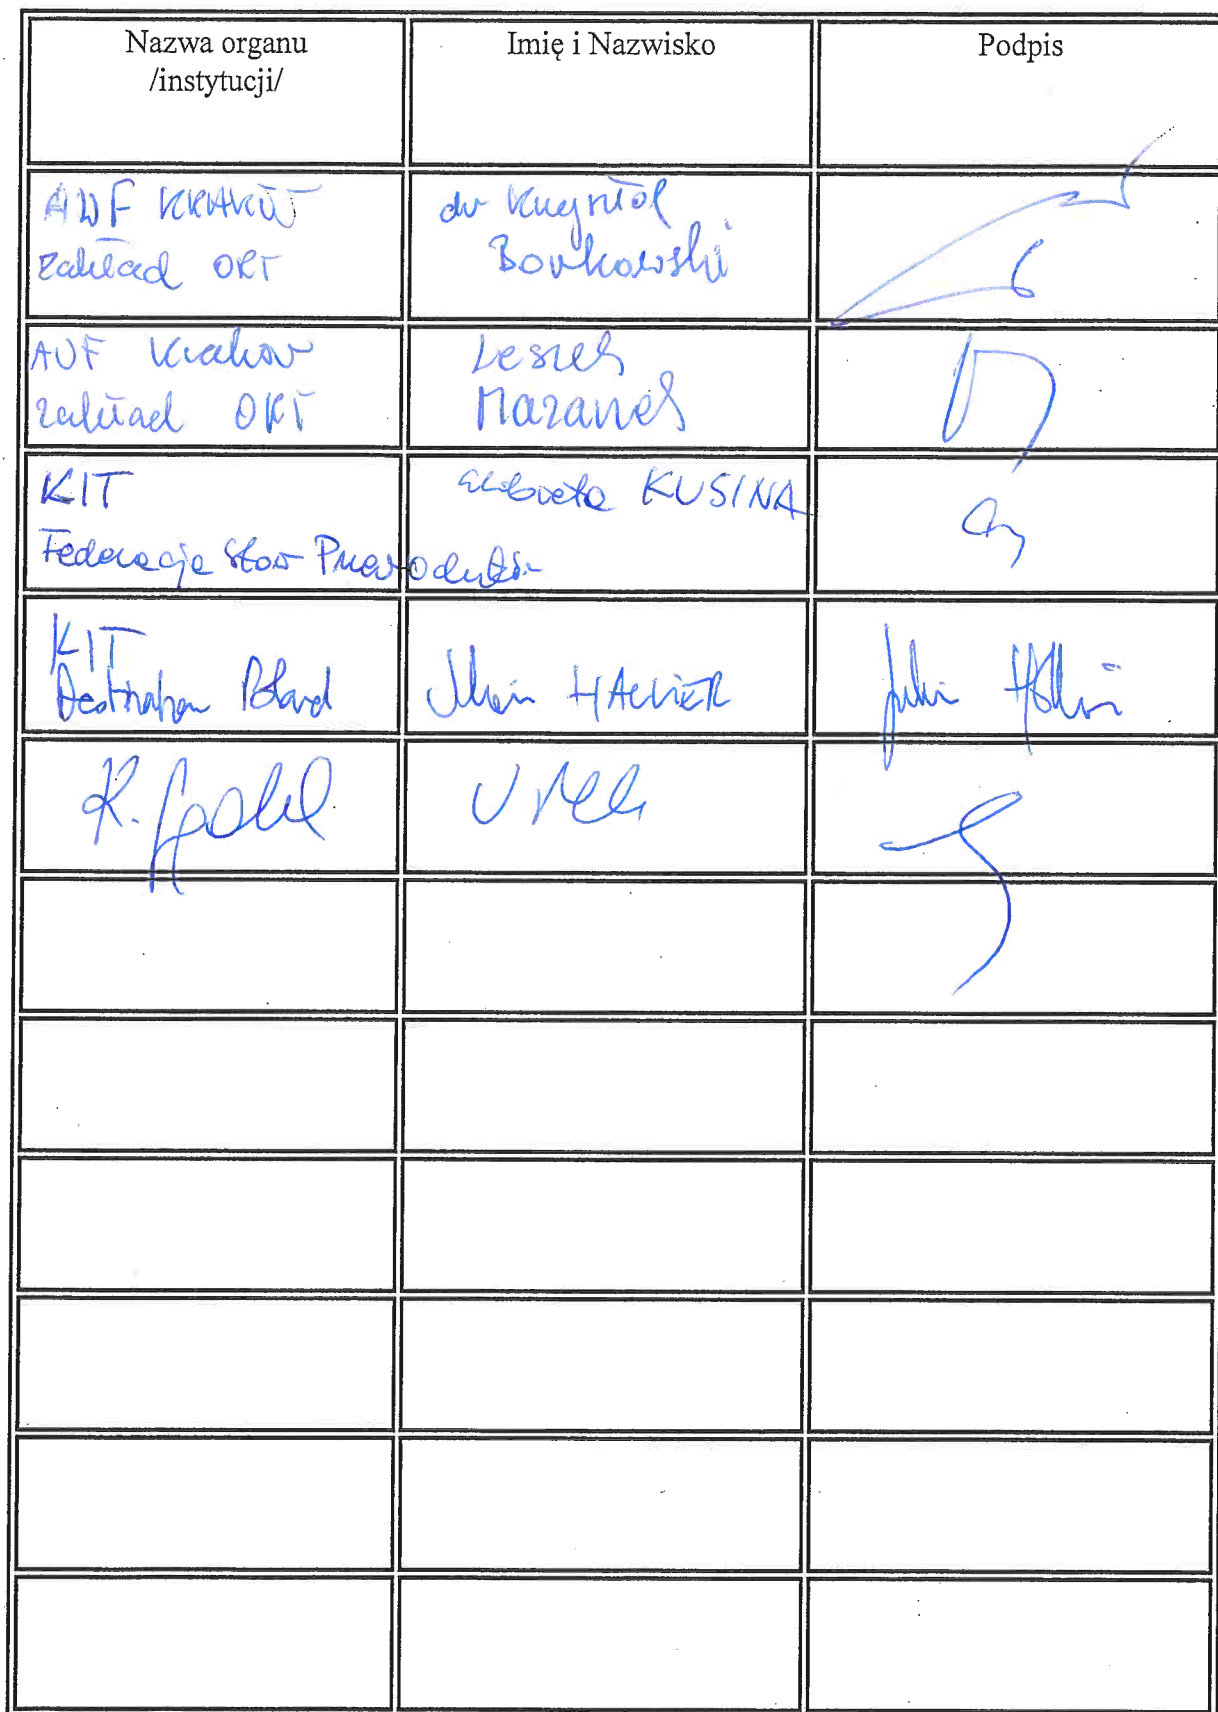 Nazwa organu
/instytucji/
Imię i Nazwisko
Podpis
AWF KRAKÓW
Zakład ORT
dr Krzysztof
Borkowski
AWF Kraków
zakład ORT
Leszek
Mazanek
KIT
Federacja Stow Przewodników
Elżbieta KUSINA
KIT
Destination Poland
HALLIER
K.